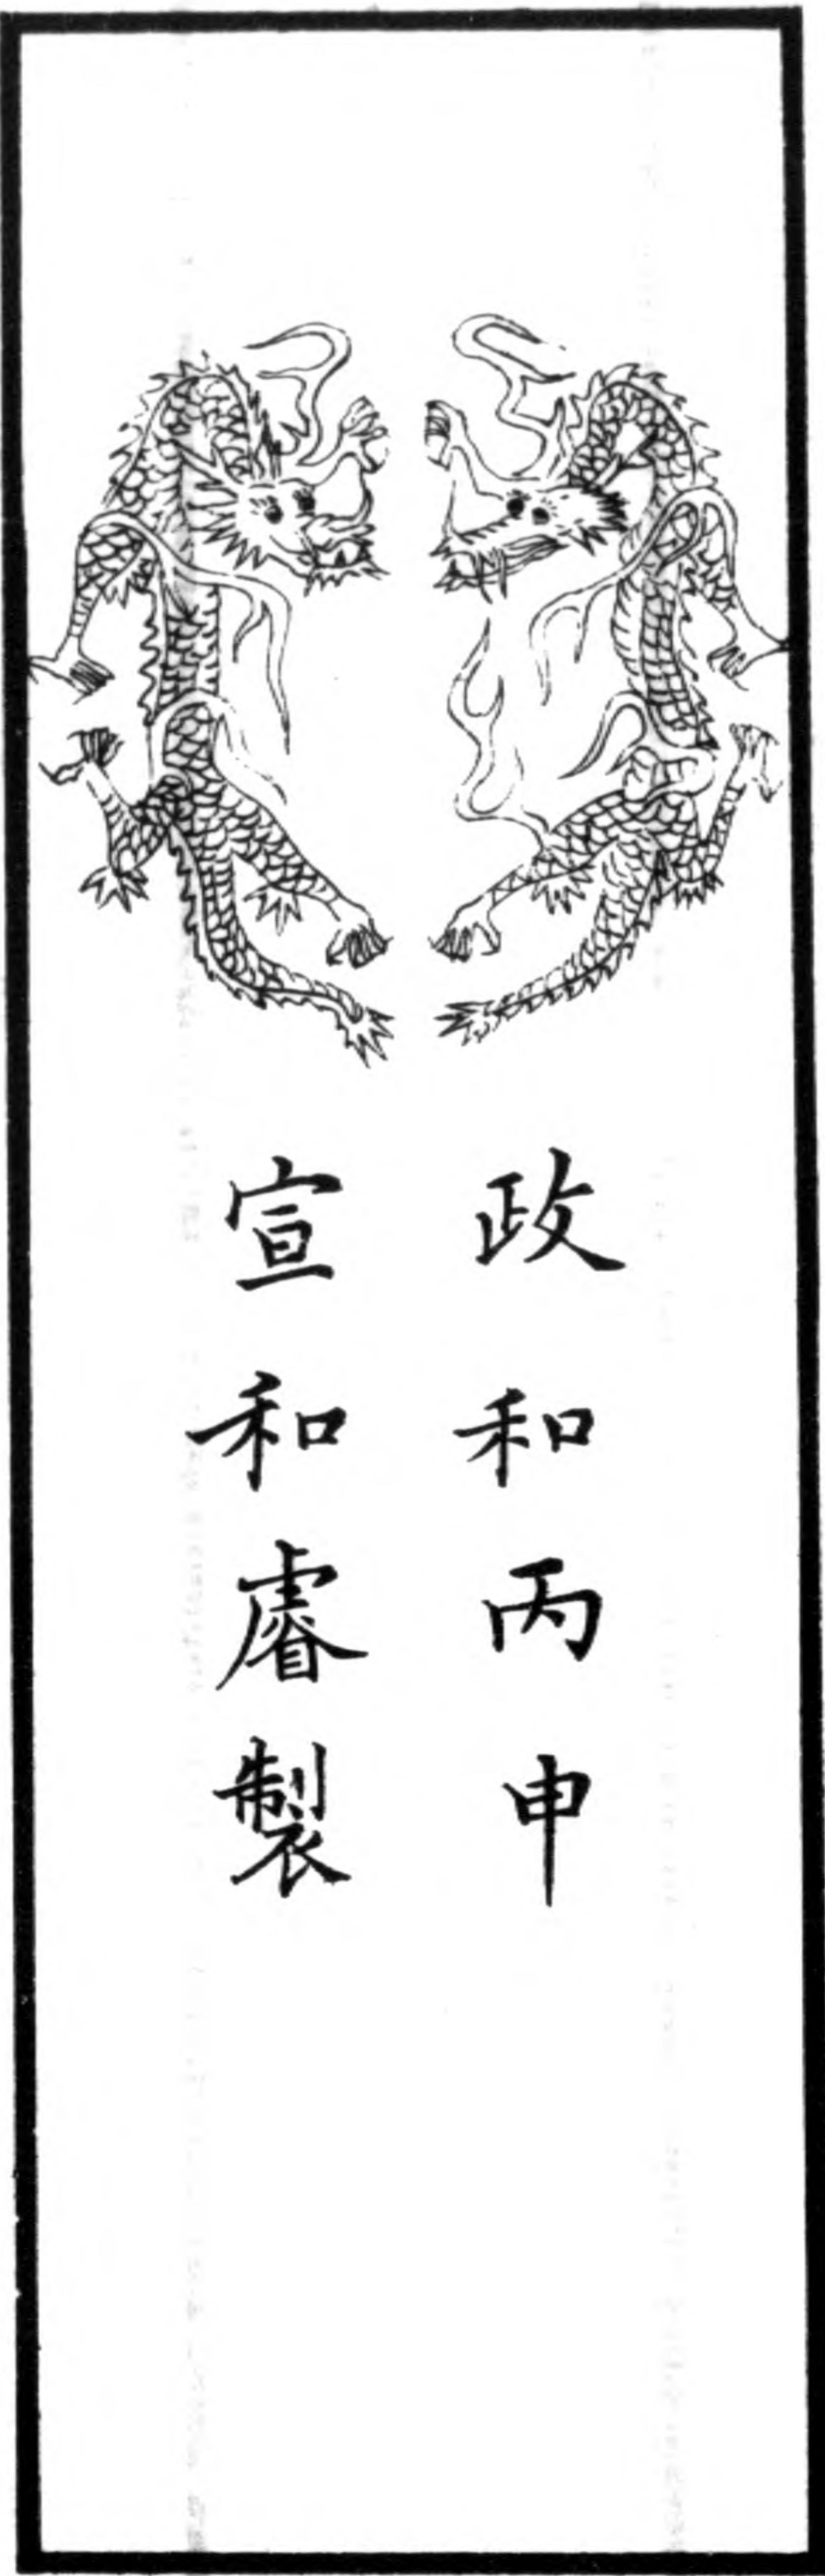 政和丙申
宣和睿製